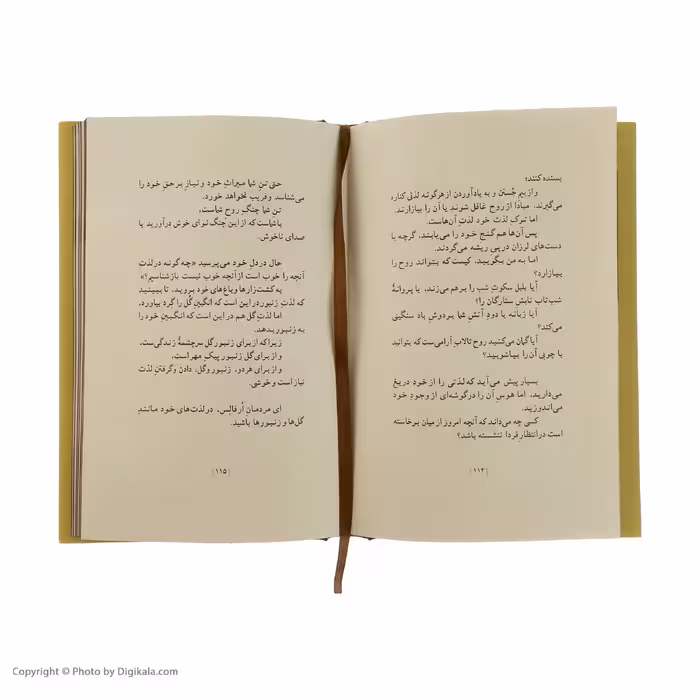 بسنده کنند؛
و از بیمِ جُستن و به یاد آوردن از هرگونه لذتی کناره
می‌گیرند. مبادا از روح غافل شوند یا آن را بیازارند.
اما ترکِ لذت خود لذتِ آن‌هاست.
پس آن‌ها هم گنجِ خود را می‌یابند، گرچه با
دست‌های لرزان در پی ریشه می‌گردند.
اما به من بگویید، کیست که بتواند روح را
بیازارد؟
آیا بلبل سکوتِ شب را برهم می‌زند، یا پروانهٔ
شب‌تاب تابشِ ستارگان را؟
آیا زبانه یا دودِ آتشِ شما بر دوشِ باد سنگینی
می‌کند؟
آیا گمان می‌کنید روح تالابِ آرامی‌ست که بتوانید
با چوبی آن را بیاشوبید؟
بسیار پیش می‌آید که لذتی را از خود دریغ
می‌دارید، اما هوسِ آن را در گوشه‌ای از وجودِ خود
می‌اندوزید.
کسی چه می‌داند که آنچه امروز از میان برخاسته
است در انتظارِ فردا ننشسته باشد؟
|۱۱۴|
حتی تنِ شما میراثِ خود و نیازِ بر حقِ خود را
می‌شناسد و فریب نخواهد خورد.
تنِ شما چنگِ روحِ شماست،
با شماست که از این چنگ نوای خوش درآورید یا
صدای ناخوش.
حال در دل خود می‌پرسید «چه گونه در لذت
آنچه را خوب است از آنچه خوب نیست بازشناسیم؟»
به کشتزارها و باغ‌های خود بروید، تا ببینید
که لذتِ زنبور در این است که انگبینِ گُل را گرد بیاورد،
اما لذتِ گُل هم در این است که انگبینِ خود را
به زنبور بدهد.
زیرا که از برای زنبور گل سرچشمهٔ زندگی‌ست،
و از برای گل زنبور پیکِ مهر است،
و از برای هر دو، زنبور و گل، دادن و گرفتنِ لذت
نیاز است و خوشی.
ای مردمانِ اُرفالِس، در لذت‌های خود مانندِ
گل‌ها و زنبورها باشید.
|۱۱۵|
Copyright © Photo by Digikala.com